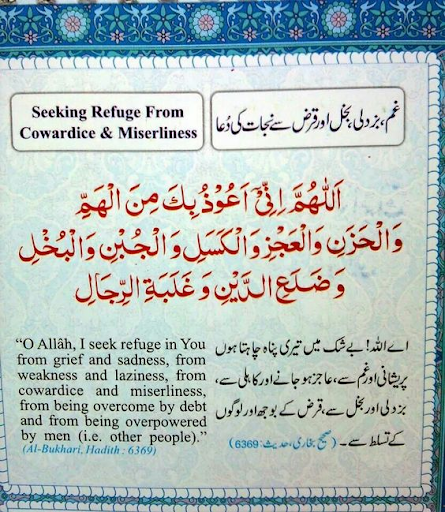 Seeking Refuge From
Cowardice & Miserliness
غم، بزدلی، بخل اور قرض سے نجات کی دُعا
اَللّٰهُمَّ اِنِّیْٓ اَعُوْذُ بِكَ مِنَ الْهَمِّ
وَالْحَزَنِ وَالْعَجْزِ وَالْكَسَلِ وَالْجُبْنِ وَالْبُخْلِ
وَضَلَعِ الدَّيْنِ وَغَلَبَةِ الرِّجَالِ
“O Allâh, I seek refuge in You
from grief and sadness, from
weakness and laziness, from
cowardice and miserliness,
from being overcome by debt
and from being overpowered
by men (i.e. other people).”
(Al-Bukhari, Hadith : 6369)
اے اللہ! بے شک میں تیری پناہ چاہتا ہوں
پریشانی اور غم سے، عاجز ہو جانے اور کاہلی سے،
بزدلی اور بخل سے، قرض کے بوجھ اور لوگوں
کے تسلط سے۔ (صحیح بخاری، حدیث: 6369)